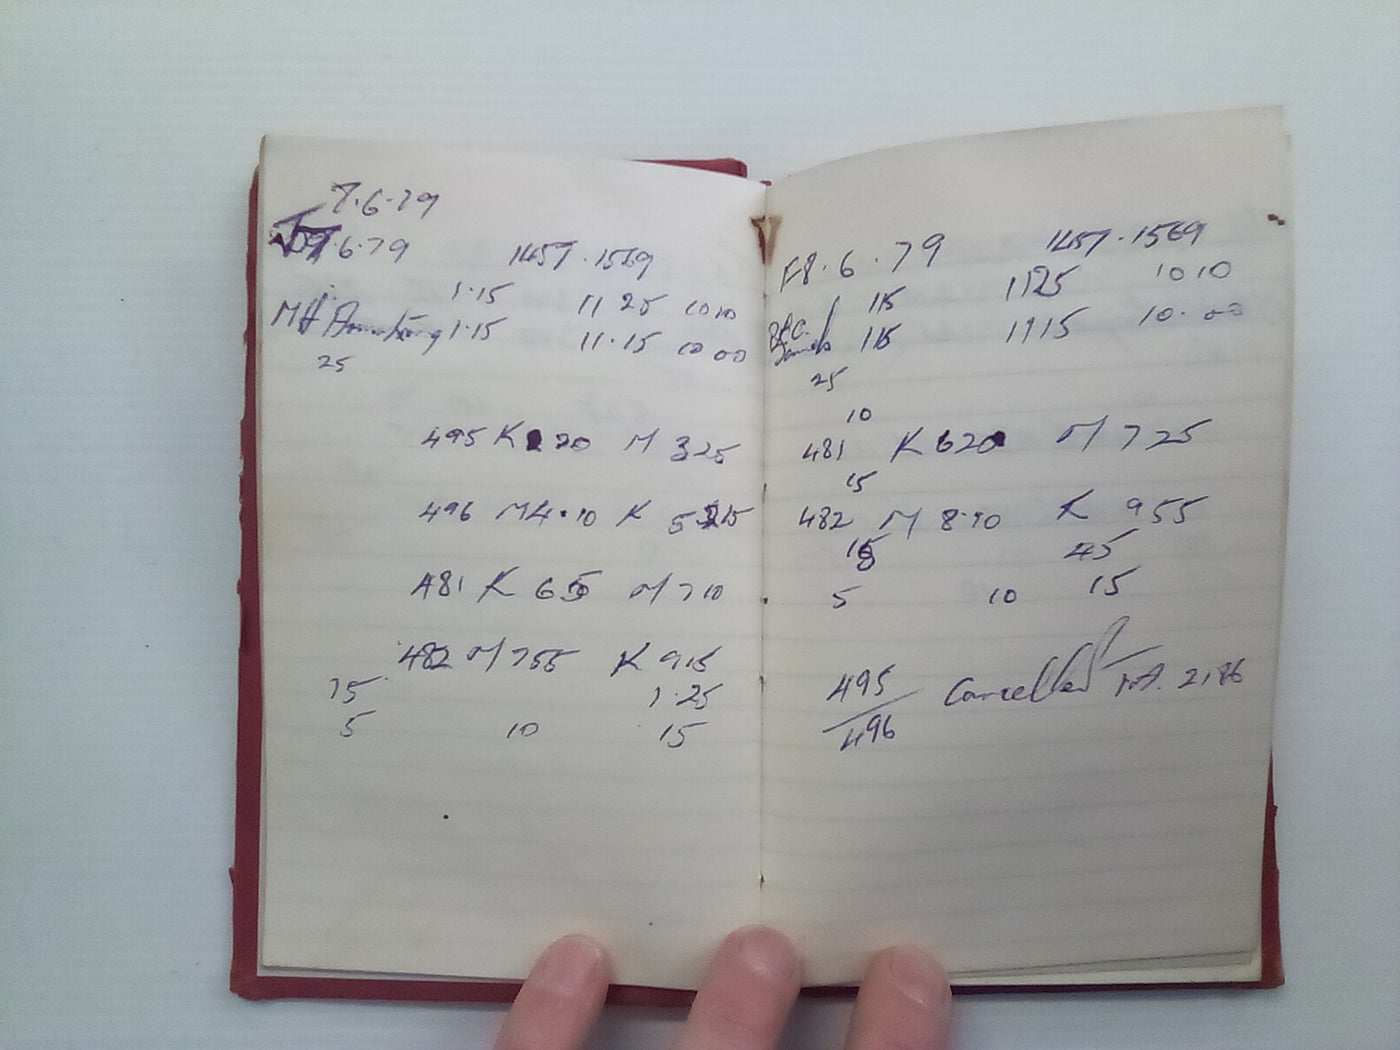 7.6.79
7.6.79 1457.1569
1.15 11 25 10 10
MH Armstrong 1.15 11.15 10 00
25
495 K 20 M 325
496 M 4.10 K 5 15
481 K 65 M 710
482 M 755 K 915
15 1.25
5 10 15
F8.6.79 1457.1569
115 1125 10 10
115 1115 10.00
25
10
481 K 620 M 725
15
482 M 8.10 K 955
15 45
5 10 15
495 Cancelled
496